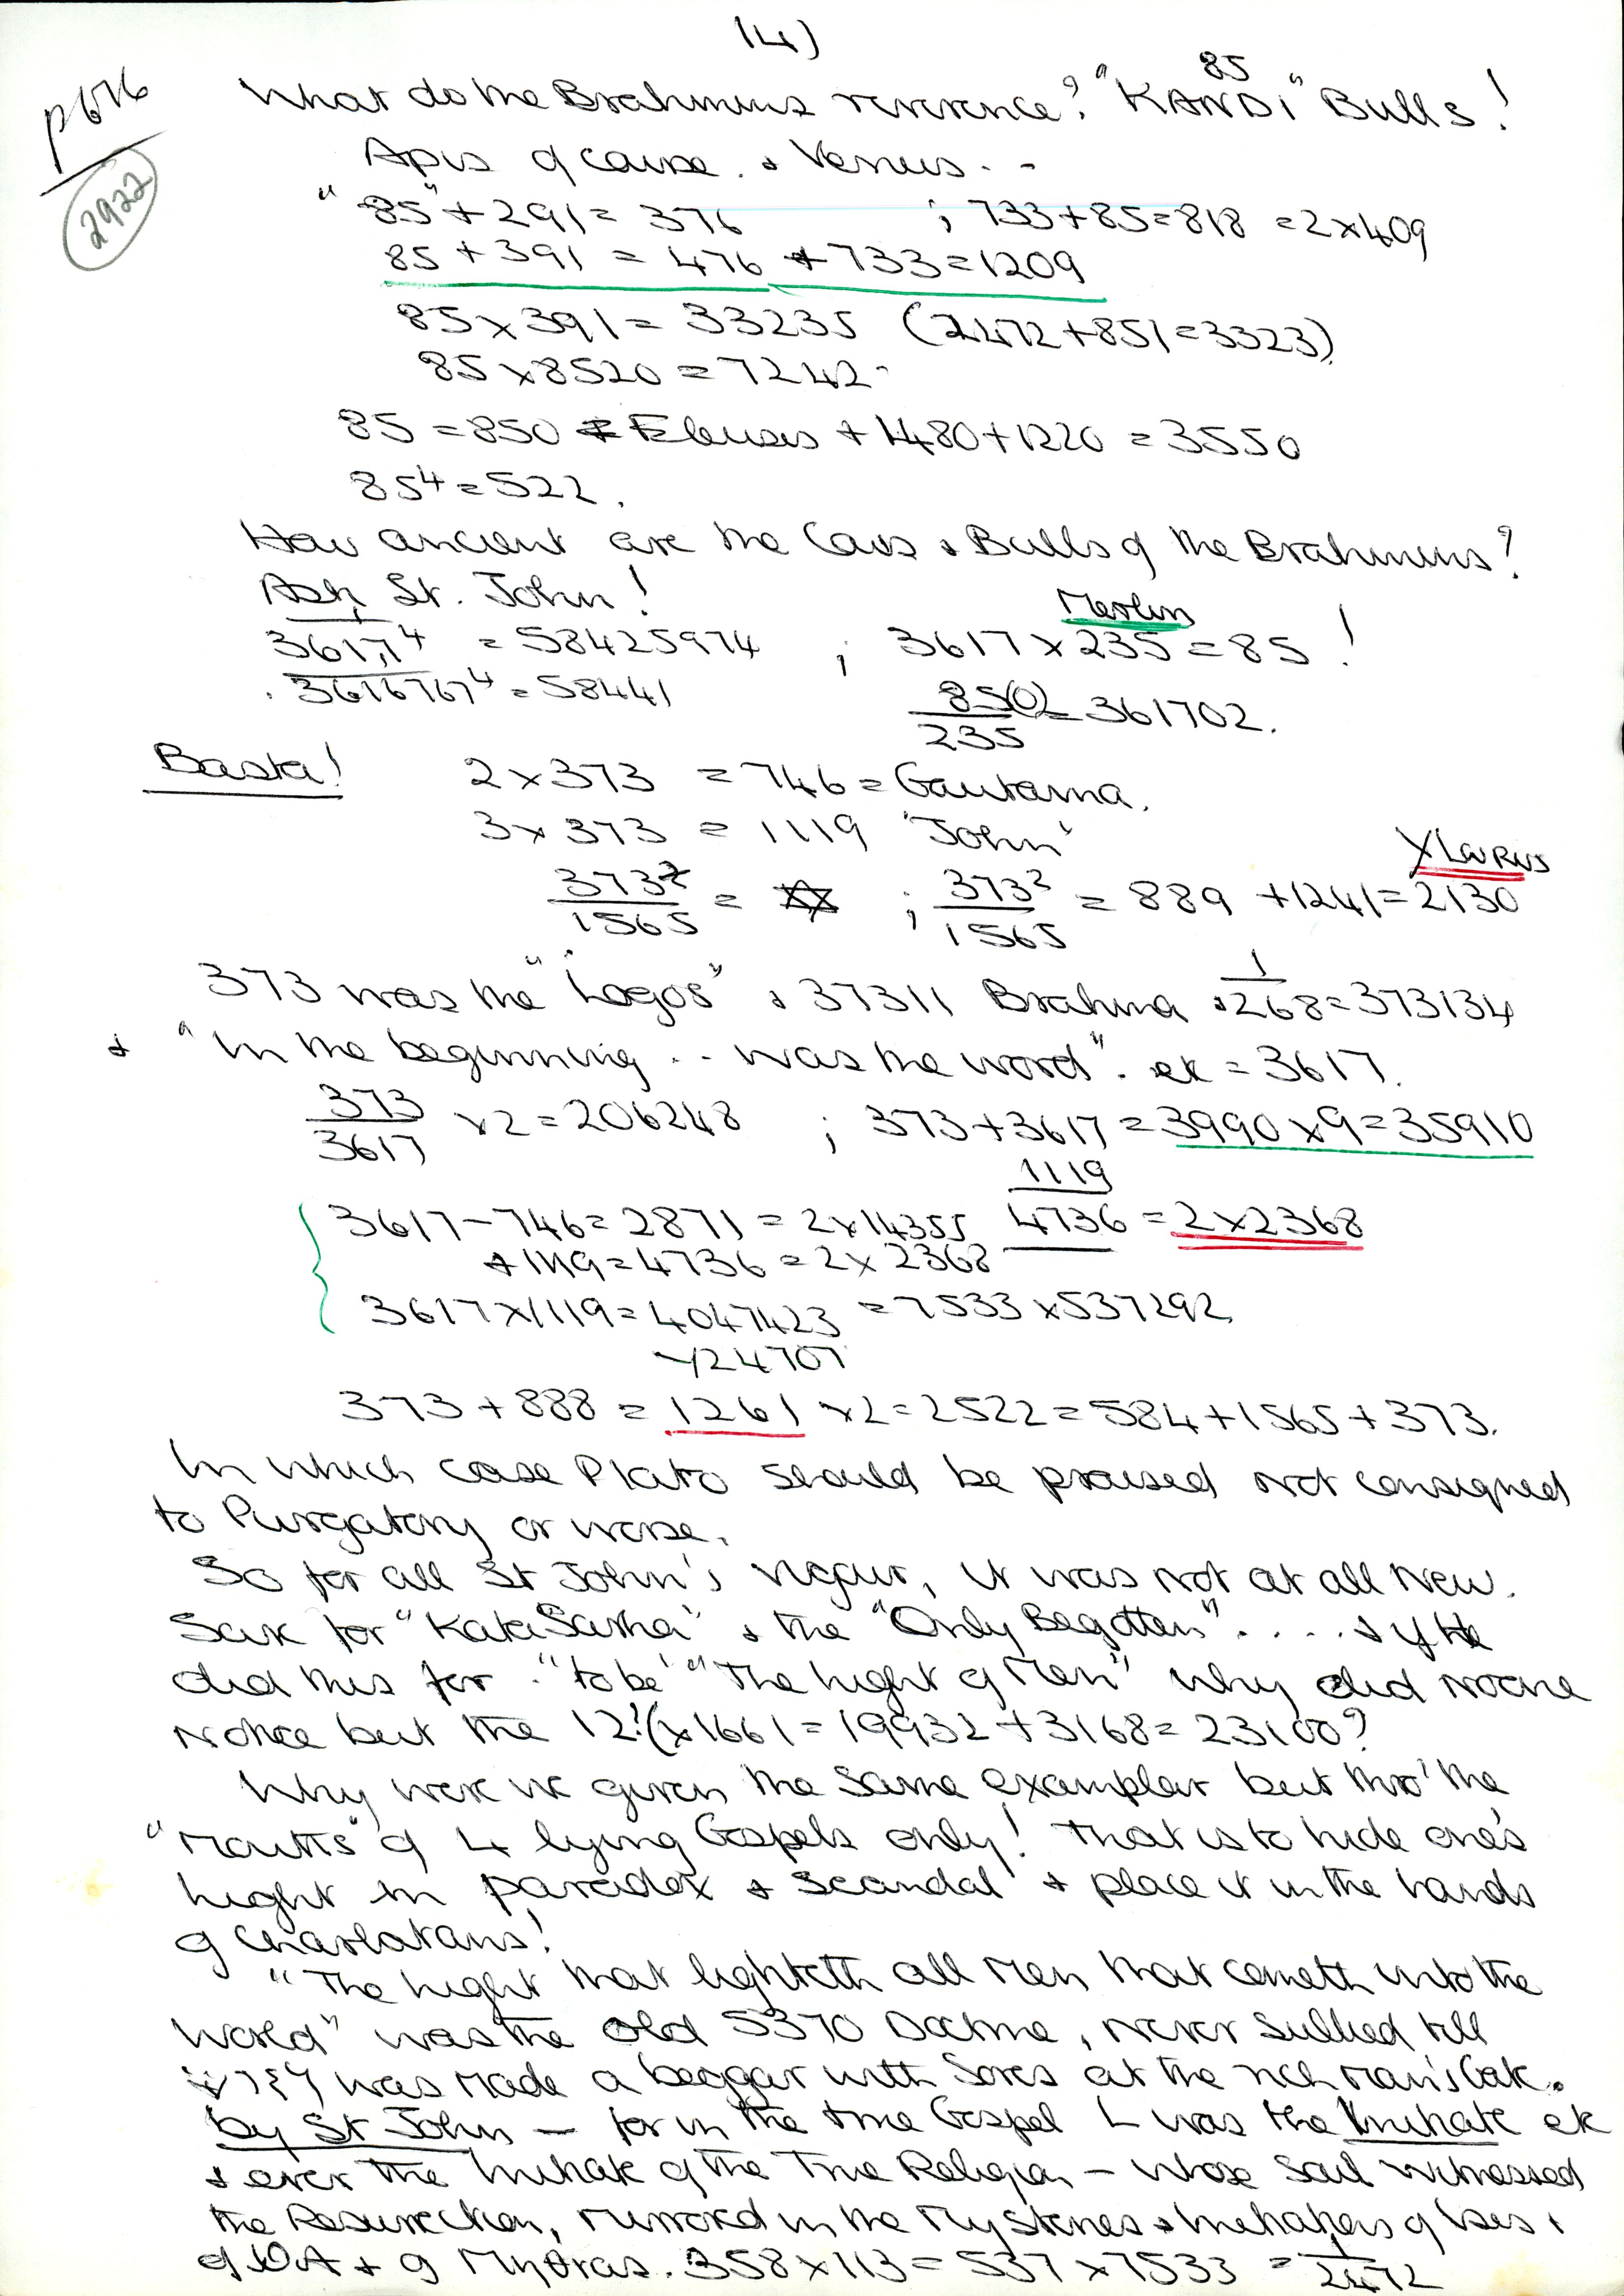 (4)
p676
2922
85
What do the Brahmins reverence? "KANDI" Bulls!
Apis of course. & Venus. . -
"85" + 291 = 376 ; 733+85=818 = 2x409
85 + 391 = 476 + 733=1209
85 x 391 = 33235 (2472+851=3323)
85 x 8520 = 7242
85 = 850 = Eleusis + 1480+1220 = 3550
85⁴ = 522.
How ancient are the Cows & Bulls of the Brahmins?
Ask St. John!
Merlin
3617,1⁴ = 58425974 ; 3617 x 235 = 85 !
3616767⁴ = 58441
850/235 = 361702.
Basta! 2 x 373 = 746 = Gautama.
3 x 373 = 1119 'John'
XLAURUS
373²/1565 = ; 373²/1565 = 889 + 1241 = 2130
373 was the "Logos" & 37311 Brahma & 1/268 = 373134
& "In the beginning . . was the word". etc = 3617.
373/3617 x2 = 206248 ; 373+3617 = 3990 x 9 = 35910
1119
3617 - 746 = 2871 = 2x14355 4736 = 2x2368
+1119 = 4736 = 2x 2368
3617 x 1119 = 4047423 = 7533 x 537292
24707
373 + 888 = 1261 x2 = 2522 = 584 + 1565 + 373.
In which case Plato should be praised not consigned
to Purgatory or worse.
So for all St John's vigour, it was not at all New.
Save for "" & the "Only Begotten" . . . . & if He
did this for "to be" "The Light of Men" why did Noone
Notice but the 12! (x1661 = 19932 + 3168 = 23100?
Why were we given the same exemplar but thro' the
"mouths" of 4 lying Gospels only! That is to hide one's
Light in paradox & Scandal & place it in the hands
of Charlatans!
"The Light that lighteth all Men that cometh into the
World" was the old 5370 Doctrine, never sullied till
was made a beggar with Sores at the rich Man's Gate.
by St John — for in the true Gospel L was the Initiate etc
& ever the Initiate of the True Religion — whose Soul witnessed
the Resurrection, mirrored in the Mysteries & Initiations of Isis,
of & of Mythras. 358 x 113 = 537 x 7533 = 1/2472